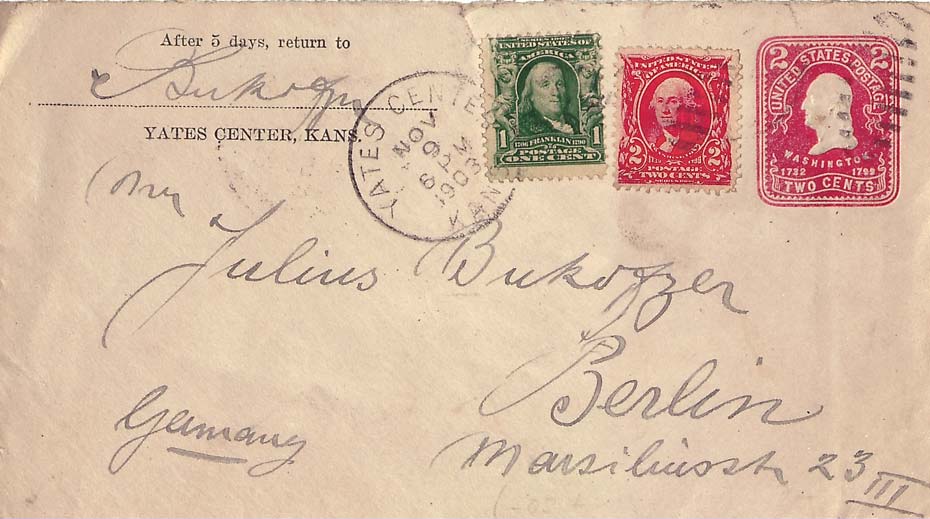 After 5 days, return to
Bukofzer
YATES CENTER, KANS.
YATES CENTER
NOV
9
6 PM
1903
KANS
UNITED STATES OF AMERICA
1 1
1706 FRANKLIN 1790
POSTAGE
ONE CENT
UNITED STATES OF AMERICA
2 2
POSTAGE
TWO CENTS
2 2
UNITED STATES POSTAGE
WASHINGTON
1732 1799
TWO CENTS
Julius Bukofzer
Berlin
Germany
Marsiliusstr 23 III